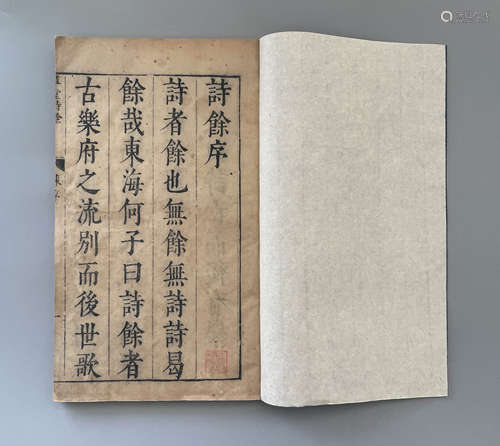 詩餘序
詩者餘也無餘無詩詩曷
餘哉東海何子曰詩餘者
古樂府之流別而後世歌